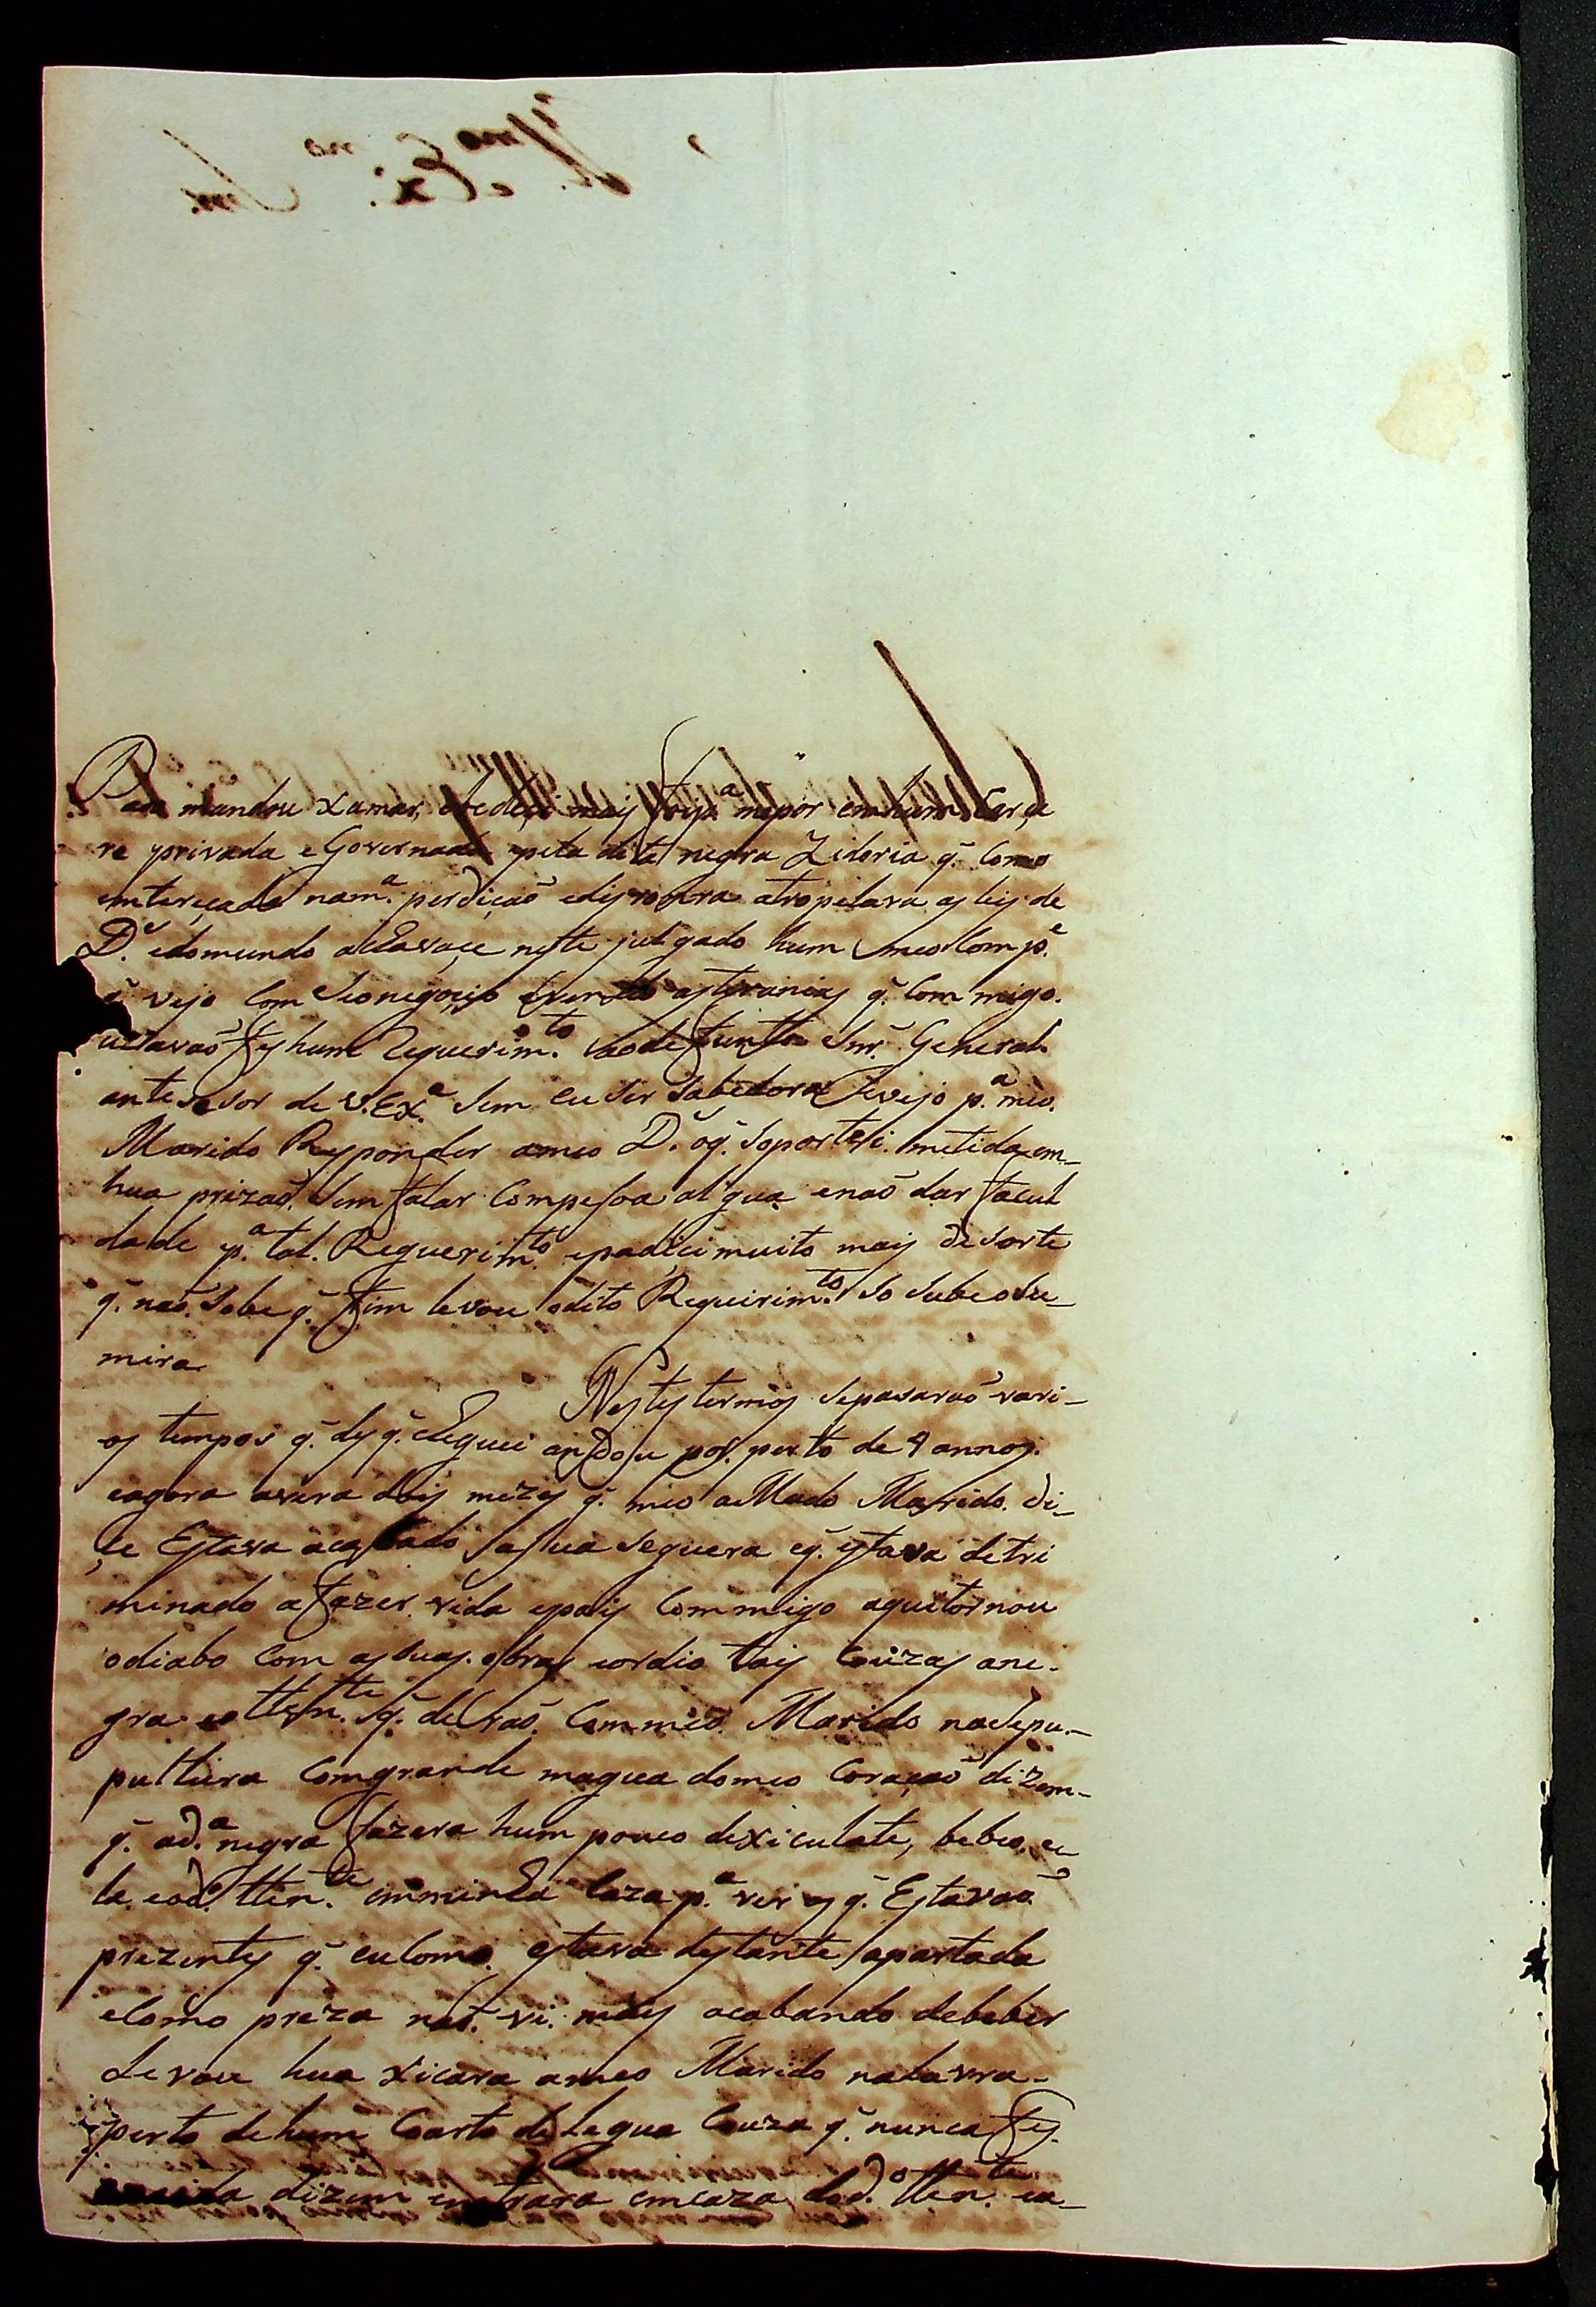 mandou xamar, obedeçi mais foy p.ª me pôr em hum Carçe
re privada e Governada pela dita negra Zidoria q̃ Como
enterecada na m.ª perdiçaõ e disronra atropelava as leis de
D.ˢ e do mundo achavaçe neste julgado hum meo Comp.ᵉ
q̃ vejo Com Seo negocio e vendo as tiranias q̃ Commigo.
uzavaõ fes hum Requerim.ᵗᵒ ao defunto Snr̃. General
antesesor de V. Ex.ª Sem eu Ser Sabedora Se vejo p.ª meo.
Marido Responder a meo D.ˢ o q̃. Soportei. metida em_
hua prizaõ. Sem falar Com pesoa algua e naõ dar facul
dade p.ª tal. Requerim.ᵗᵒ e padeci muito mais de Sorte
q̃. naõ. Sobe q̃. fim levou o dito Requirim.ᵗᵒ So Sube o Su_
mira
Nestes termos Se pasaraõ vari_
os tempos q̃. des q̃. Cheguei andou por. perto de 4 annos.
e agora avera dois mezes q̃. meo aMado Marido. di_
çe Estava acabado a Sua Seguera e q̃. estava detri
minado a fazer. vida e pais Commigo aqui tornou
o diabo Com as Suas. obras e ordio tais Couzas a ne_
gra e o tten.ᵗᵉ q̃. deraõ. Com meo. Marido na Sepu._
pultura Com grande magua do meo Coraçaõ dizem_
q̃. a d.ª negra fazera hum pouco de xiculate, bebeo. e_
la. e o d.º tten.ᵗᵉ em minha Caza p.ª ver os q̃. Estavaõ
prezentes q̃. eu Como. estava destante apartada
e Como preza naõ. vi. mais acabando de beber
Levou hua xicara a meo Marido na Lavra_
perto de hum Coarto de Legua Couza q̃. nunca fes.
dizem entrara em caza do d.º tten.ᵗᵉ e a_